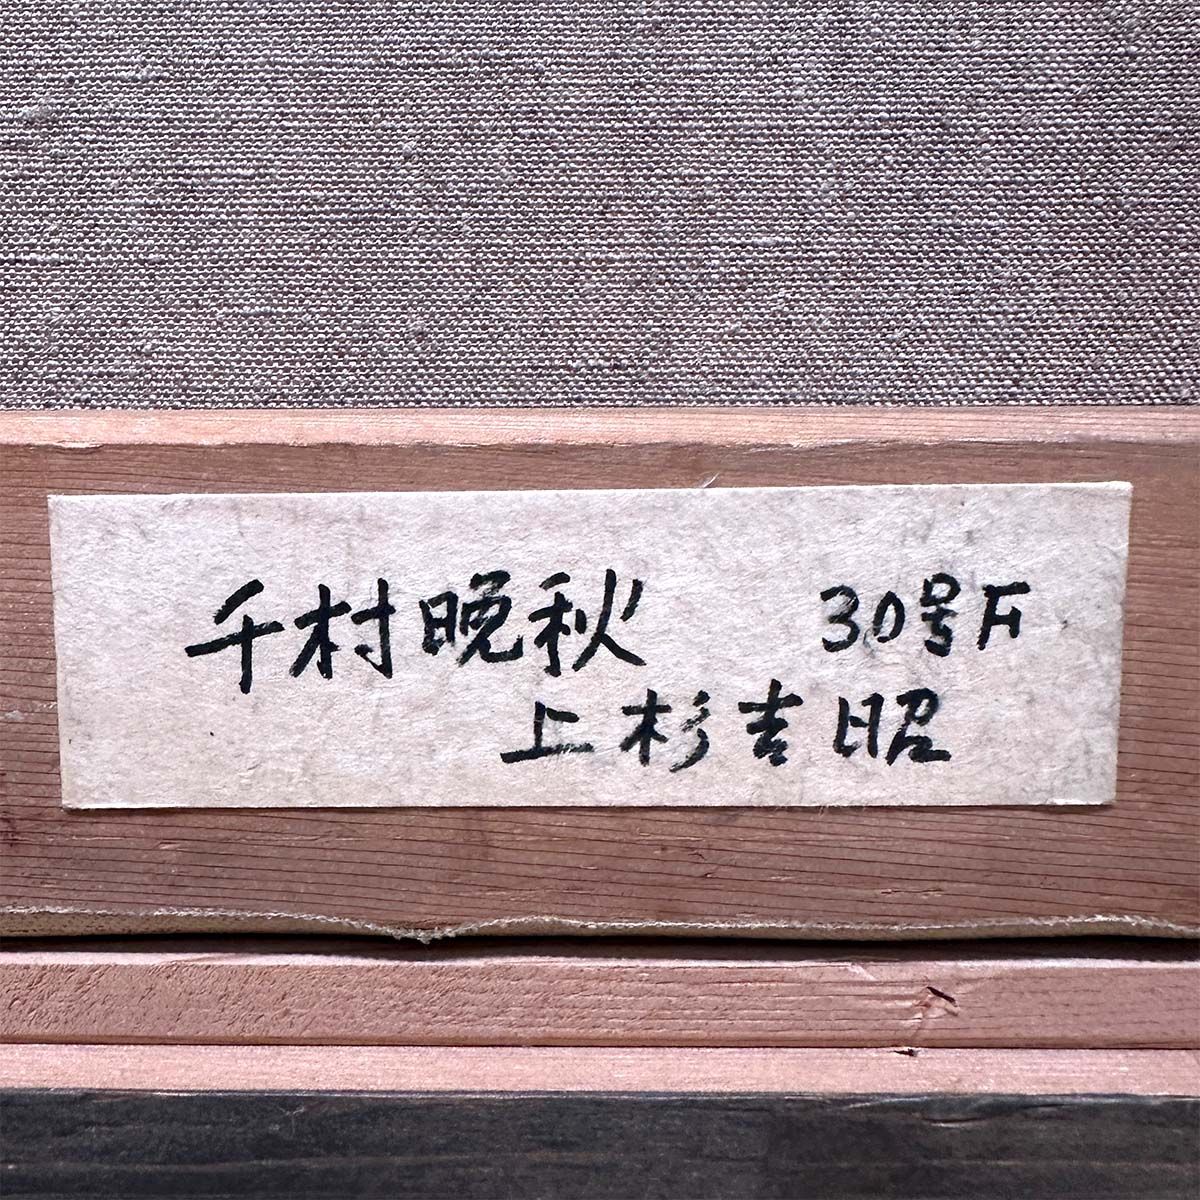 千村晩秋 30号F
上杉吉昭